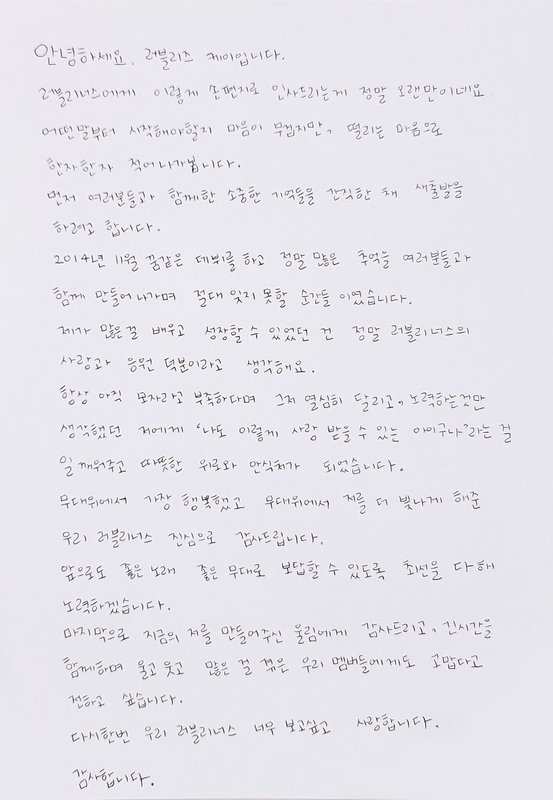 안녕하세요. 러블리즈 케이입니다.
러블리너스에게 이렇게 손편지로 인사드리는게 정말 오랜만이네요.
어떤말부터 시작해야할지 마음이 무겁지만, 떨리는 마음으로
한자한자 적어나가봅니다.
먼저 여러분들과 함께한 소중한 기억들을 간직한 채 새출발을
하려고 합니다.
2014년 11월 꿈같은 데뷔를 하고 정말 많은 추억을 여러분들과
함께 만들어나가며 절대 잊지 못할 순간들 이였습니다.
제가 많은걸 배우고 성장할 수 있었던 건 정말 러블리너스의
사랑과 응원 덕분이라고 생각해요.
항상 아직 모자라고 부족하다며 그저 열심히 달리고, 노력하는것만
생각했던 저에게 '나도 이렇게 사랑 받을 수 있는 아이구나'라는 걸
일깨워주고 따뜻한 위로와 안식처가 되었습니다.
무대위에서 가장 행복했고 무대위에서 저를 더 빛나게 해준
우리 러블리너스 진심으로 감사드립니다.
앞으로도 좋은 노래 좋은 무대로 보답할 수 있도록 최선을 다해
노력하겠습니다.
마지막으로 지금의 저를 만들어주신 울림에게 감사드리고, 긴시간을
함께하며 울고 웃고 많은 걸 겪은 우리 멤버들에게도 고맙다고
전하고 싶습니다.
다시한번 우리 러블리너스 너무 보고싶고 사랑합니다.
감사합니다.